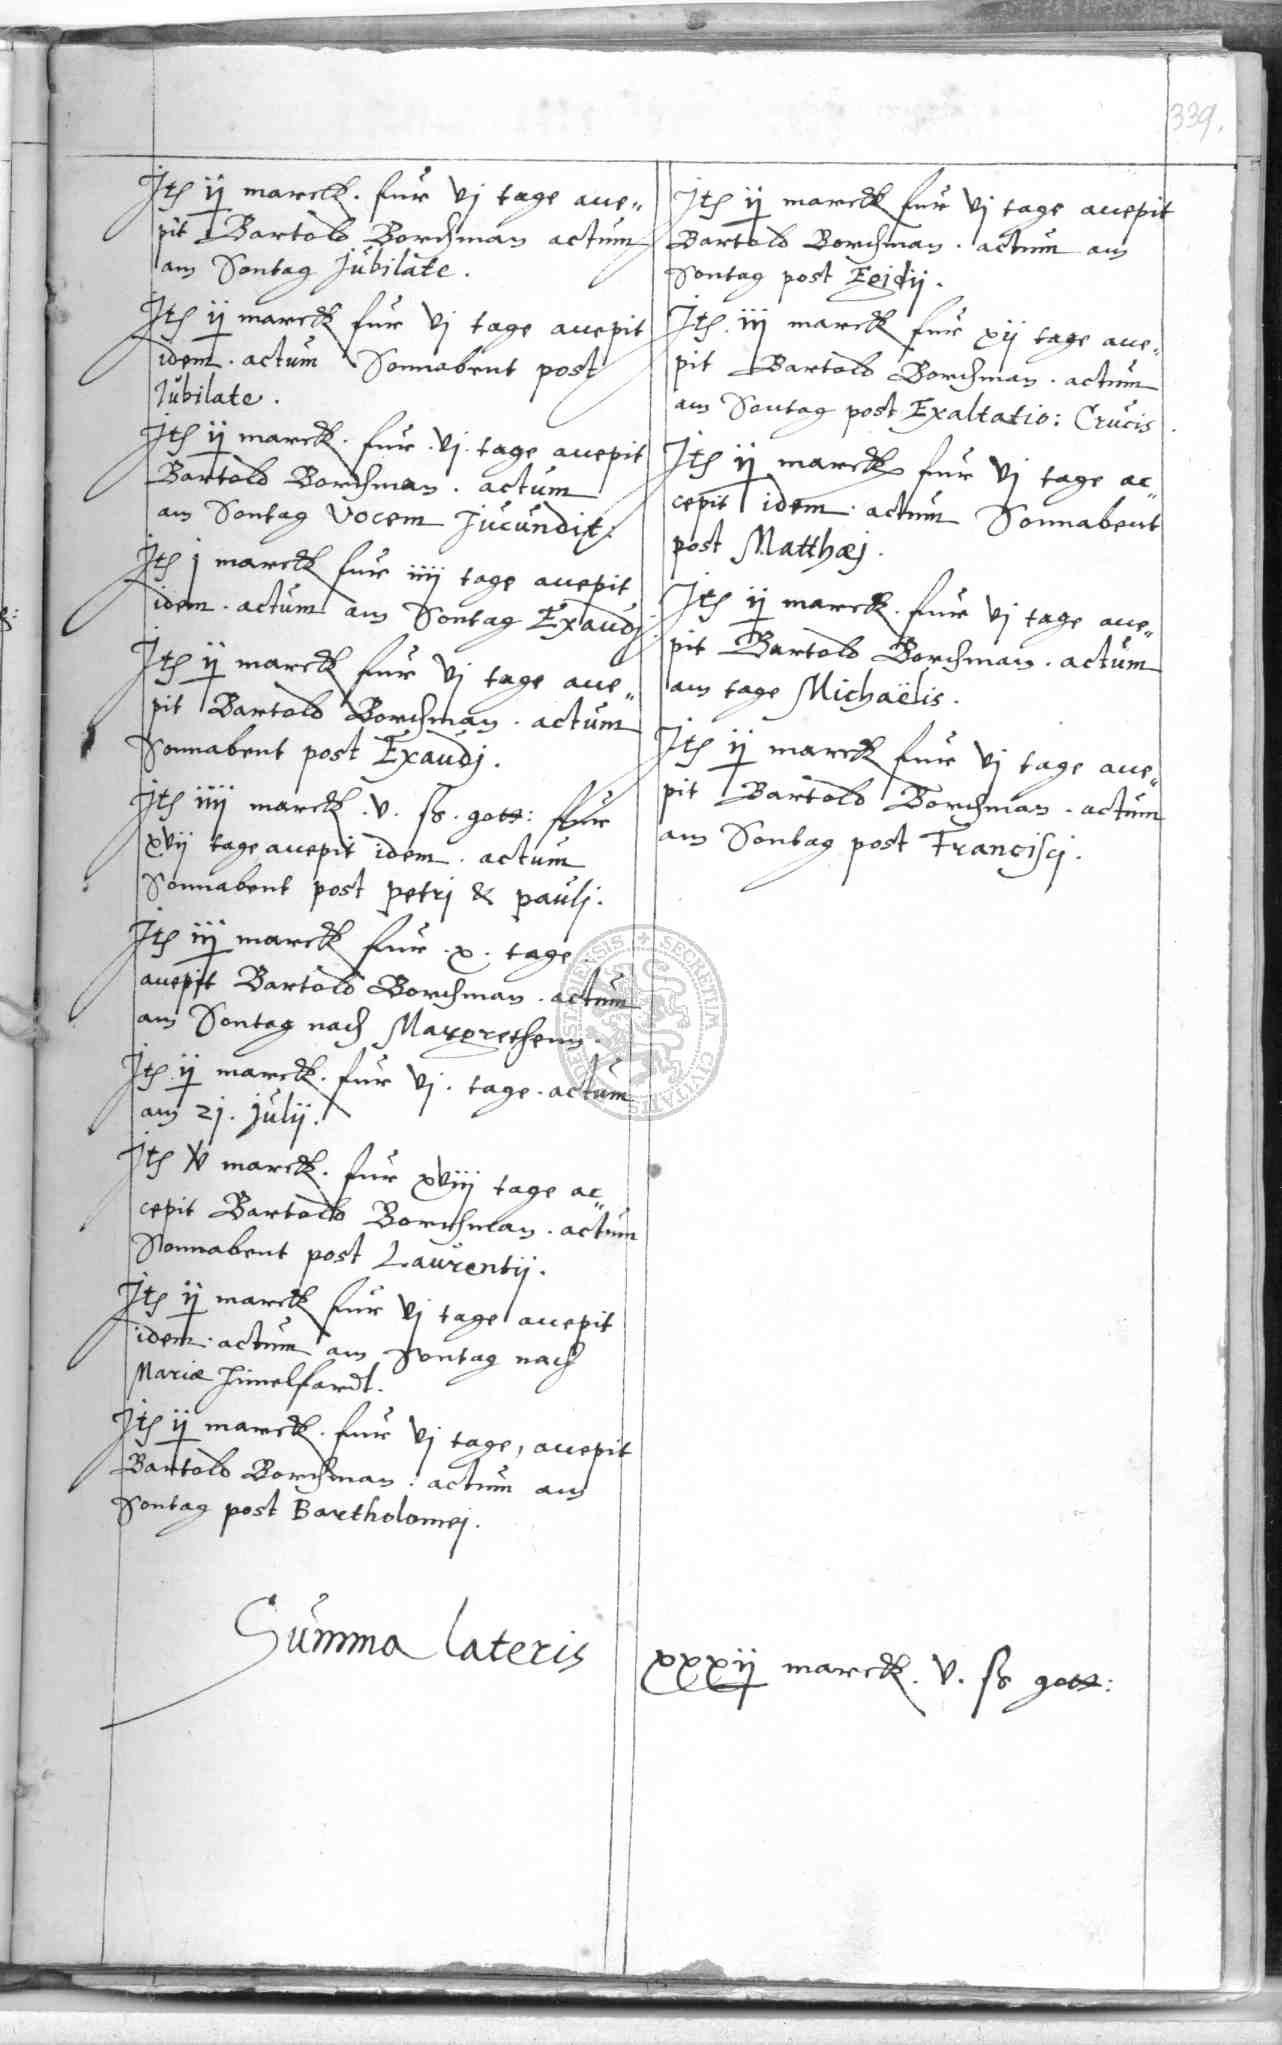 339.
Itē ij marck. fur vj tage acce„
pit Bartold Borchman actum
am Sontag Jubilate.
Itē ij marck fur vj tage accepit
idem. actum Sonnabent post
Jubilate.
Itē ij marck. fur. vj. tage accepit
Bartold Borchman. actum
am Sontag Vocem Jucundit:
Itē j marck fur iiij tage accepit
idem. actum am Sontag Exaudj.
Itē ij marck fur vj tage acce„
pit Bartold Borchman. actum
Sonnabent post Exaudj.
Itē iiij marck. v. ß. gott: fur
xvij tage accepit idem. actum
Sonnabent post petrj & paulj.
Itē iij marck fur. x. tage.
accepit Bartold Borchman. actum
am Sontag nach Margrethenn.
Itē ij marck. fur vj. tage. actum
am 21. julij.
Itē marck. fur xviij tage ac„
cepit Bartold Borchman. actum
Sonnabent post Laurentij.
Itē ij marck fur vj tage accepit
idem. actum am Sontag nach
Mariæ Himelfardt.
Itē ij marck. fur vj tage, accepit
Bartold Borchman. actum am
Sontag post Bartholomej.
Itē ij marck fur vj tage accepit
Bartold Borchman. actum am
Sontag post Egidij.
Itē. iij marck fur xij tage acce„
pit Bartold Borchman. actum
am Sontag post Exaltatio: Crucis.
Itē ij marck fur vj tage ac„
cepit idem. actum Sonnabent
post Matthæj.
Itē ij marck. fur vj tage acce„
pit Bartold Borchman. actum
am tage Michaëlis.
Itē ij marck fur vj tage acce„
pit Bartold Borchman. actum
am Sontag post Francisci.
Summa lateris xxxij marck. v. ß gott: